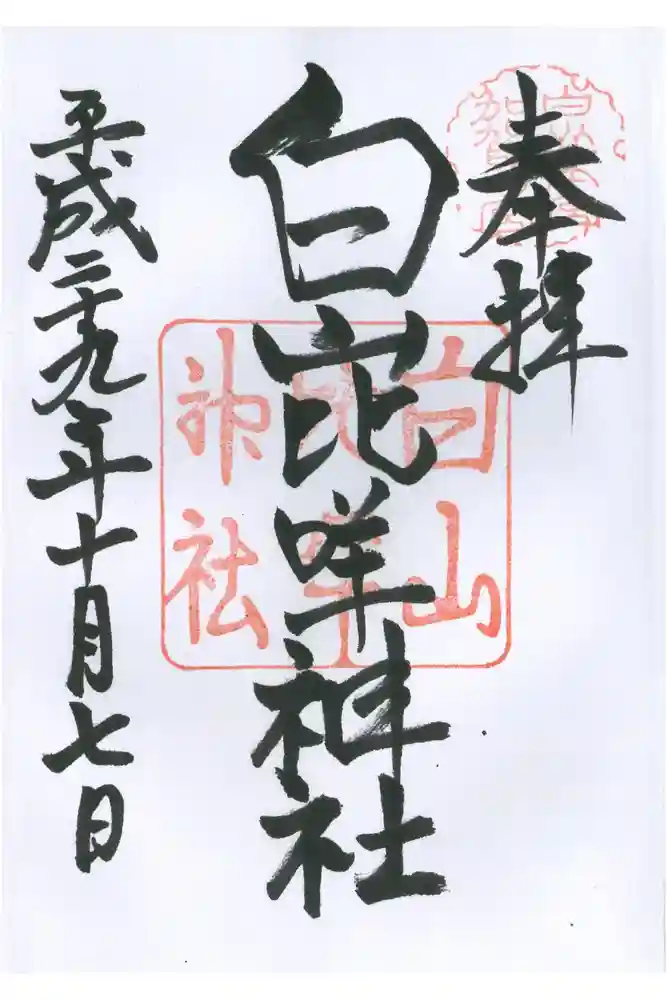 奉拝
白山比咩神社
平成二十九年十月七日
白山
比咩
神社